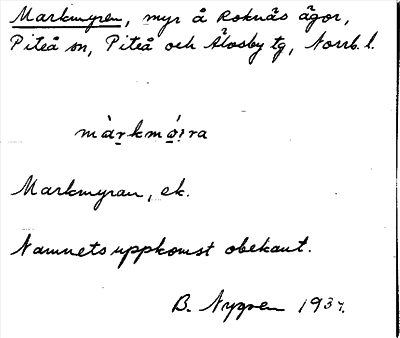 Markmyren, myr å Roknäs ägor,
Piteå sn, Piteå och Älvsby tg, Norrb. l.
màrkmø̀:ra
Markmyran, ek.
Namnets uppkomst obekant.
B. Nygren 1937.